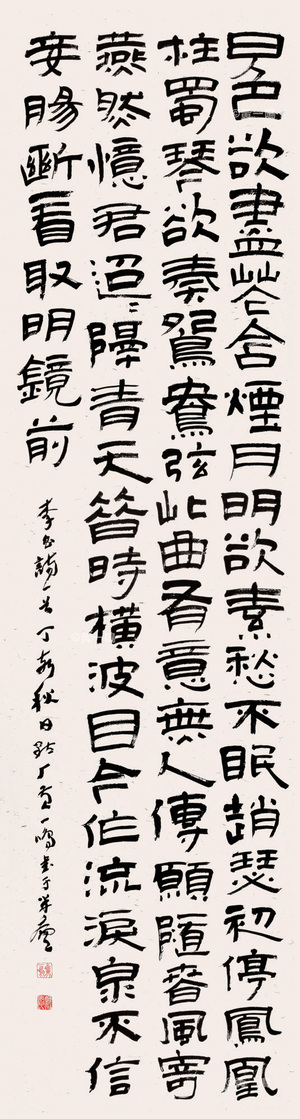 日色欲盡花含煙月明欲素愁不眠趙瑟初停鳳凰
柱蜀琴欲奏鴛鴦弦此曲有意無人傳願隨春風寄
燕然憶君迢迢隔青天昔時橫波目今作流淚泉不信
妾腸斷看取明鏡前
李白詩一首丁亥秋日於